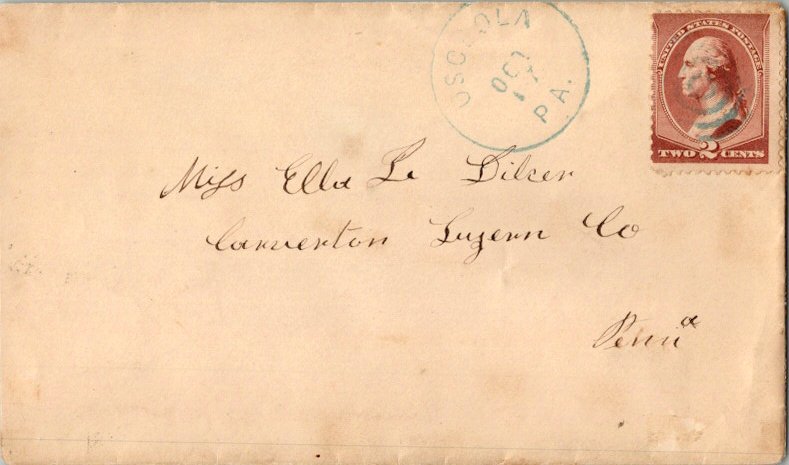 OSCEOLA
OCT
17
PA.
UNITED STATES POSTAGE
TWO 2 CENTS
Miss Ella Le Dilser
Carverton Luzern Co
Penna